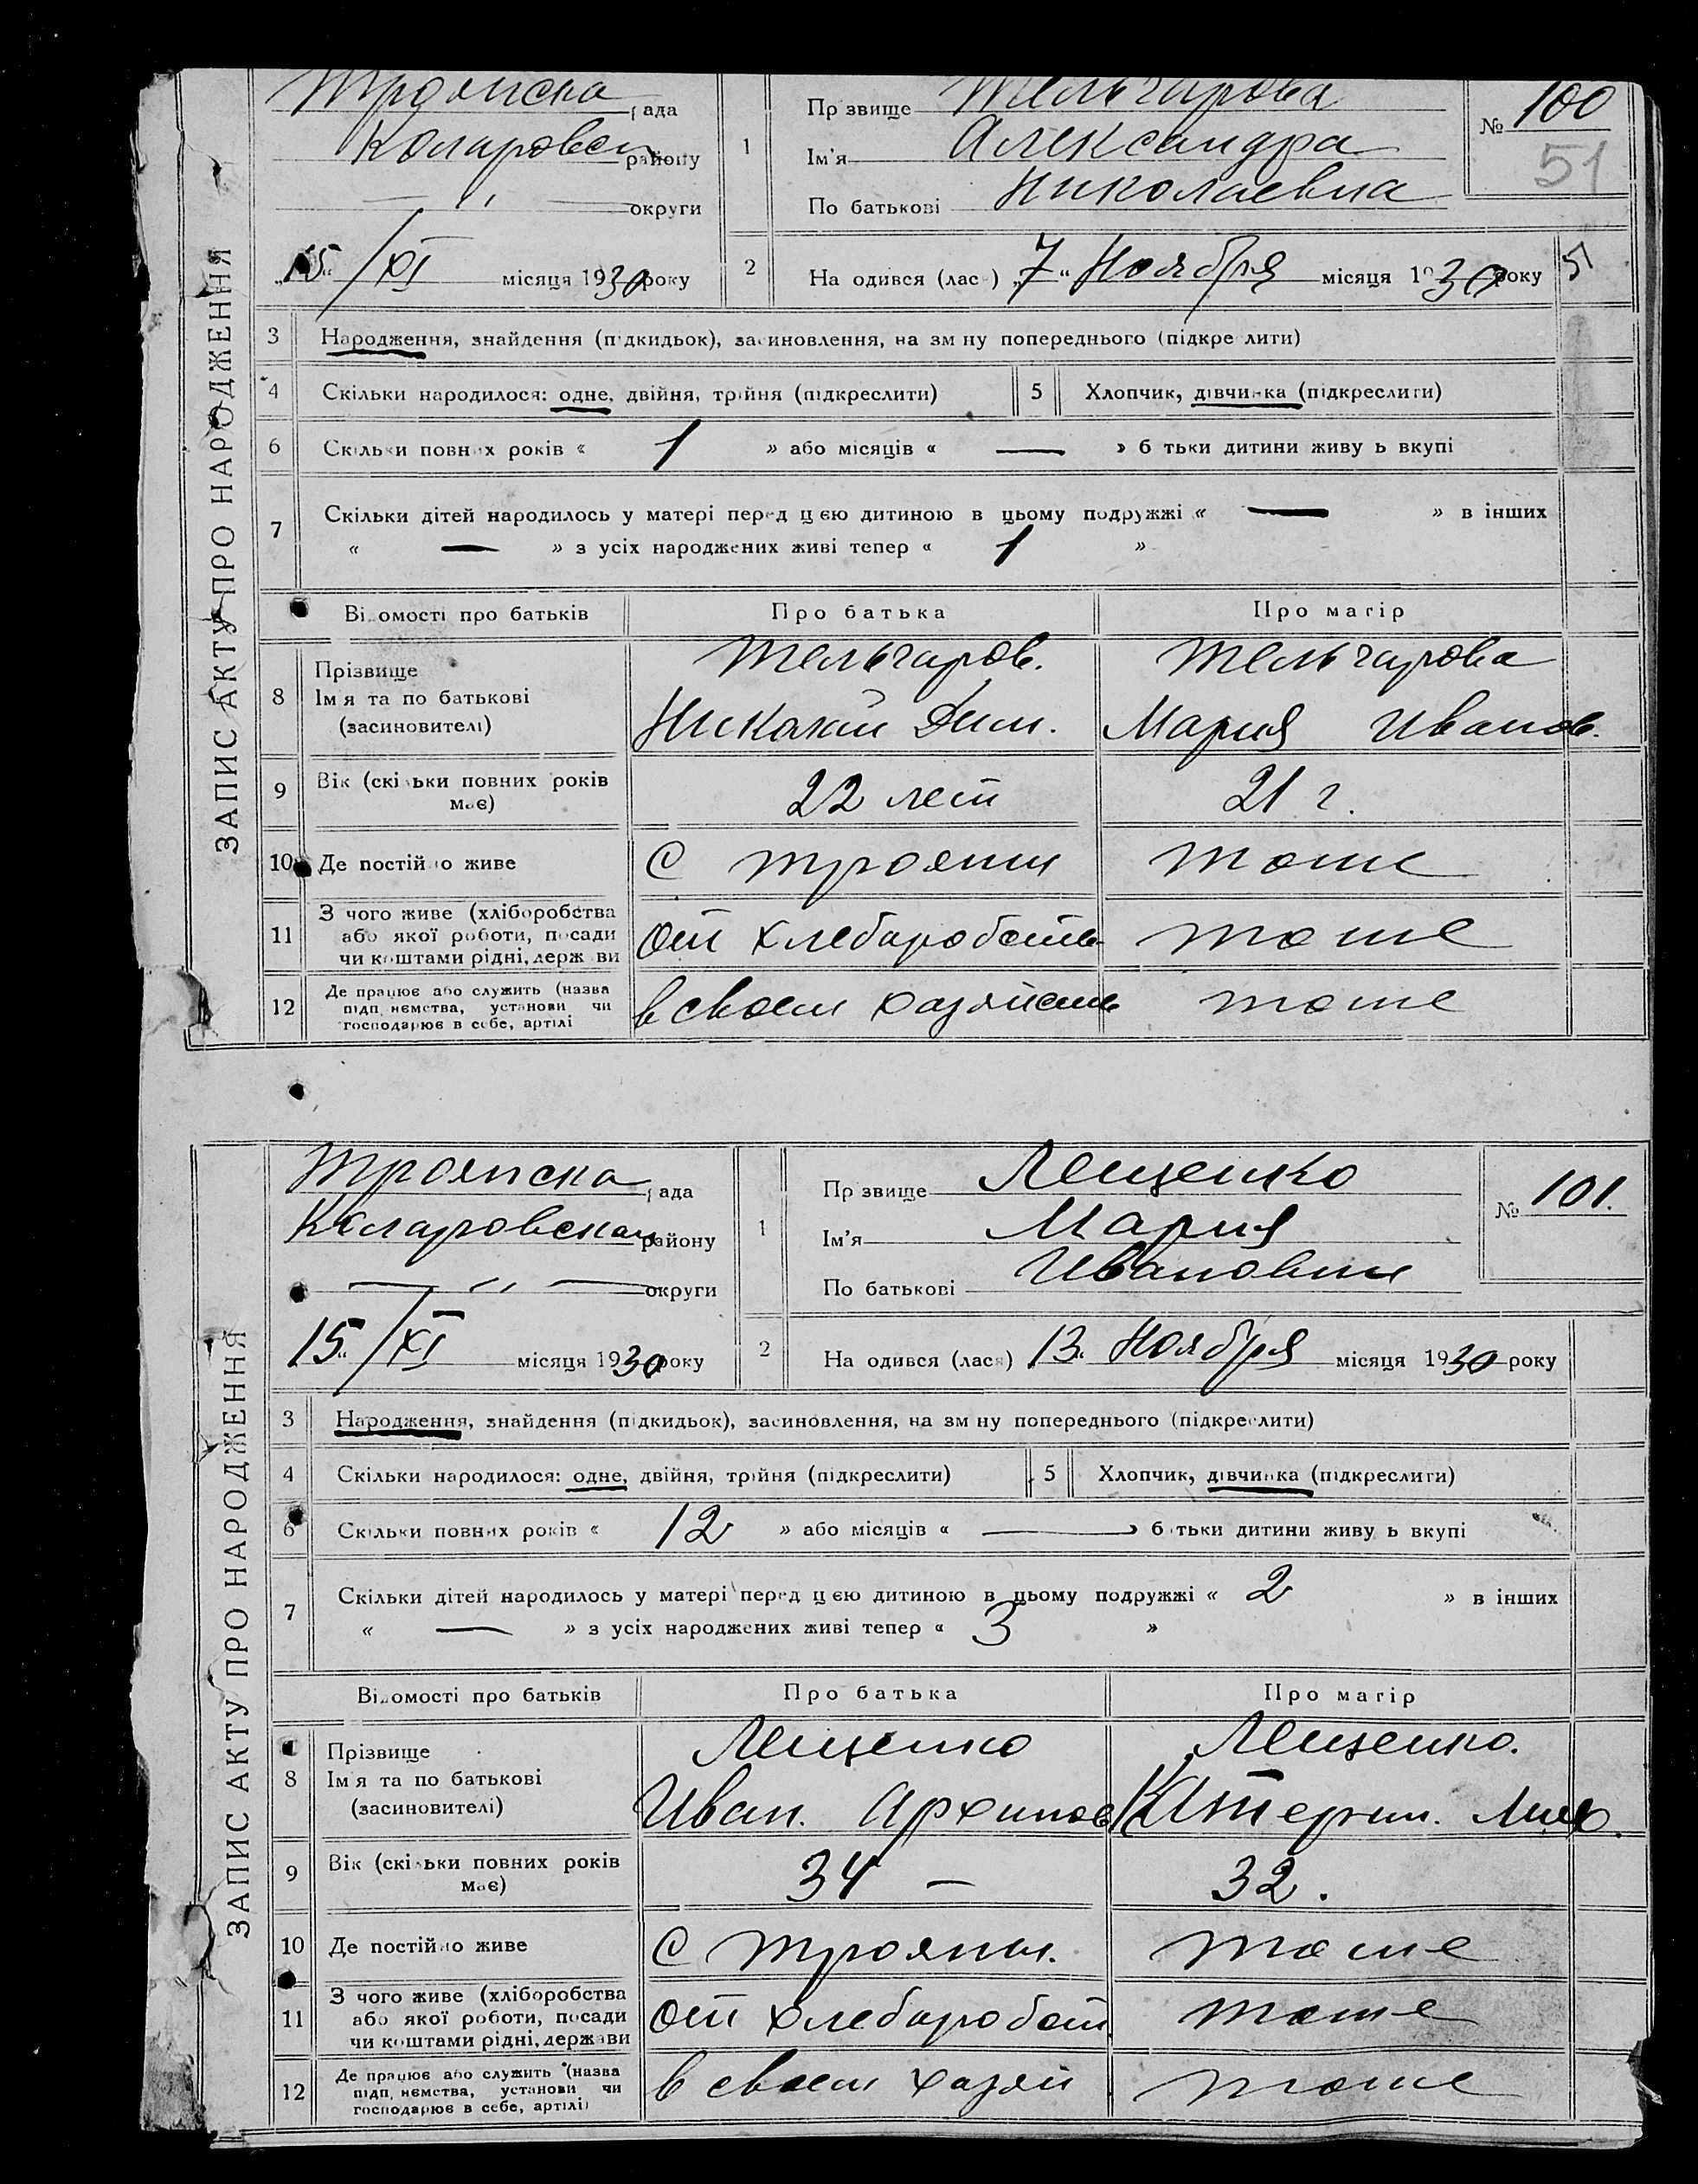 ЗАПИС АКТУ ПРО НАРОДЖЕННЯ
Троянска рада
Коларовск району
— " — округи
„15“ /XI місяця 1930 року
1
Пр звище Тельчарова
Ім'я Александра
По батькові Николаевна
№ 100
51
2 На одився (лас ) „7“ Ноября місяця 1930 року
51
3 Народження, знайдення (підкидьок), засиновлення, на зм ну попереднього (підкре лити)
4 Скільки народилося: одне, двійня, трійня (підкреслити) 5 Хлопчик, дівчинка (підкреслити)
6 Скільки повних років « 1 » або місяців « — » б тьки дитини живу ь вкупі
7 Скільки дітей народилось у матері перед цією дитиною в цьому подружжі « — » в інших
« — » з усіх народжених живі тепер « 1 »
Ві омості про батьків Про батька Про матір
8 Прізвище Тельчаров. Тельчарова
Ім я та по батькові
(засиновителі) Николай Дим. Мария Иванов.
9 Вік (скільки повних років
має) 22 лет 21 г.
10 Де постійно живе С трояны тоше
11 З чого живе (хліборобства
або якої роботи, посади
чи коштами рідні, держ ви От хлебаробств тоше
12 Де працює або служить (назва
підп иємства, установи чи
господарює в себе, артілі в своем хазяйств тоше
ЗАПИС АКТУ ПРО НАРОДЖЕННЯ
Троянска рада
Коларовскаи району
— " — округи
15“ /XI місяця 1930 року
1
Пр звище Лещенко
Ім'я Мария
По батькові Ивановны
№ 101.
2 На одився (лася) 13“ Ноября місяця 1930 року
3 Народження, знайдення (підкидьок), засиновлення, на зм ну попереднього (підкреслити)
4 Скільки народилося: одне, двійня, трійня (підкреслити) 5 Хлопчик, дівчинка (підкреслити)
6 Скільки повних років « 12 » або місяців « — » б тьки дитини живу ь вкупі
7 Скільки дітей народилось у матері перед цією дитиною в цьому подружжі « 2 » в інших
« — » з усіх народжених живі тепер « 3 »
Відомості про батьків Про батька Про матір
8 Прізвище Лещенко Лещенко.
Ім я та по батькові
(засиновителі) Иван. Архипов Катерин.
9 Вік (скільки повних років
має) 34 — 32.
10 Де постійно живе С трояны. тоше
11 З чого живе (хліборобства
або якої роботи, посади
чи коштами рідні, держави От хлебаробст. тоше
12 Де працює або служить (назва
підп иємства, установи чи
господарює в себе, артілі) в своем хазяй. тоше